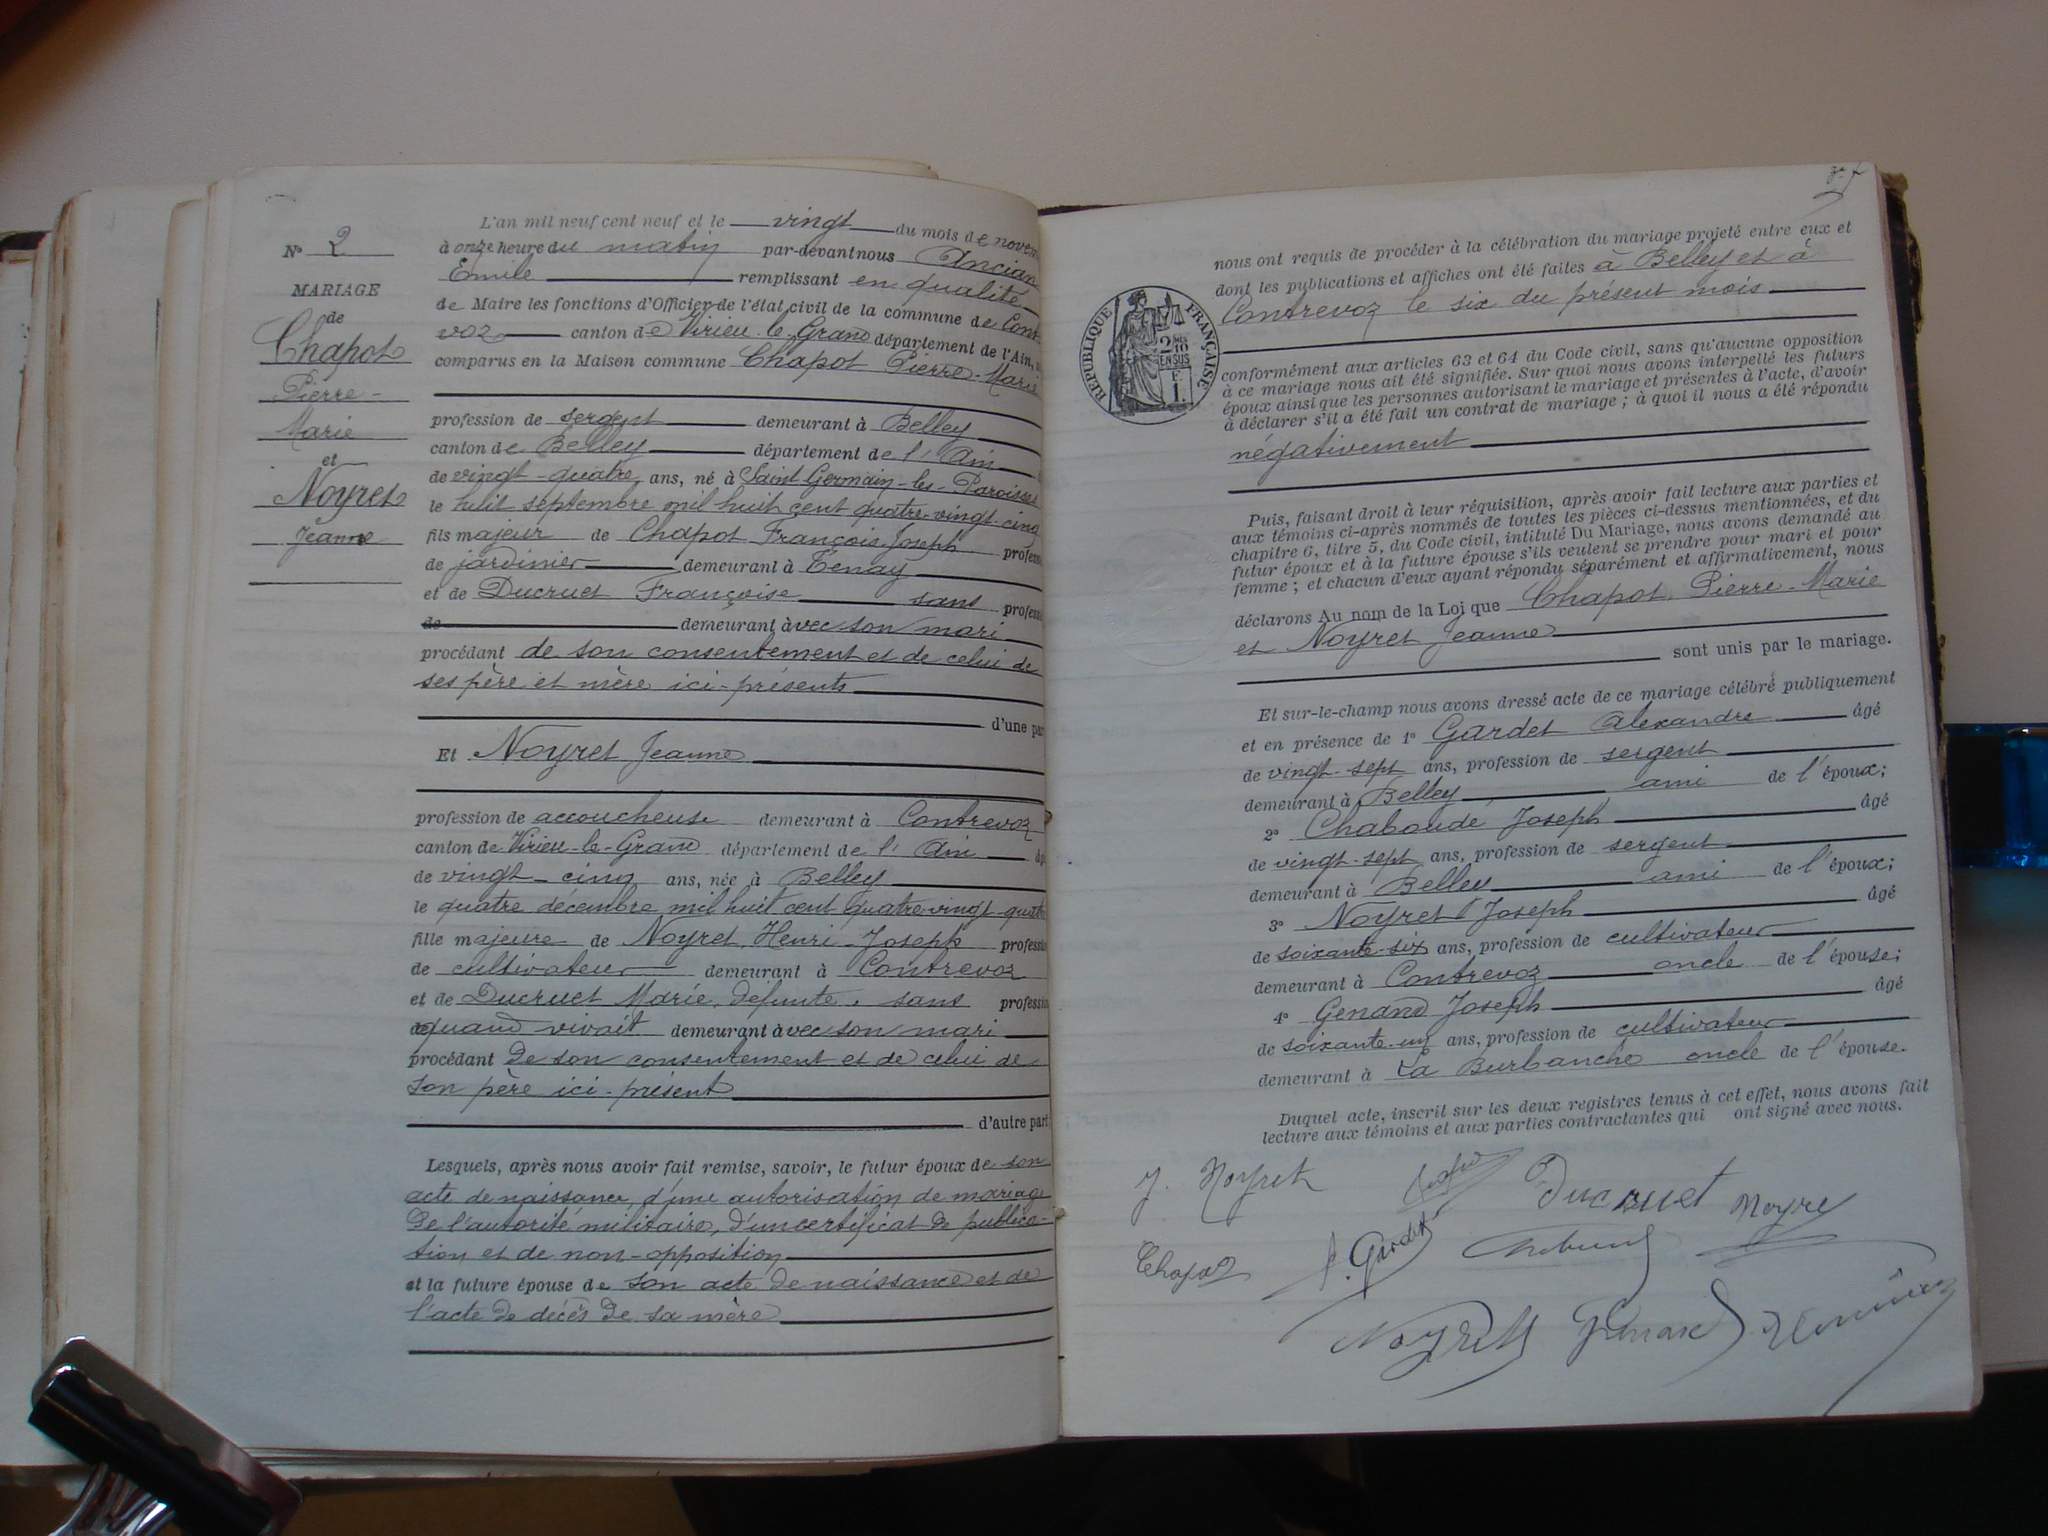 Nº 2
MARIAGE
de
Chapot
Pierre-
Marie
et
Noyret
Jeanne
L'an mil neuf cent neuf et le vingt du mois de novem
à onze heure du matin par-devant nous Ancian
Emile remplissant en qualité
de Maire les fonctions d'Officier de l'état civil de la commune de Contre
voz canton de Virieu-le-Grand département de l'Ain,
comparus en la Maison commune Chapot Pierre-Marie
profession de sergent demeurant à Belley
canton de Belley département de l'Ain
de vingt-quatre ans, né à Saint Germain-les-Paroisses
le huit septembre mil huit cent quatre-vingt-cinq
fils majeur de Chapot François Joseph profess
de jardinier demeurant à Tenay
et de Ducruet Françoise sans profess
de demeurant avec son mari
procédant de son consentement et de celui de
ses père et mère ici-présents
d'une par
Et Noyret Jeanne
profession de accoucheuse demeurant à Contrevoz
canton de Virieu-le-Grand département de l'Ain
de vingt-cinq ans, née à Belley
le quatre décembre mil huit cent quatre-vingt-quatre
fille majeure de Noyret Henri-Joseph professio
de cultivateur demeurant à Contrevoz
et de Ducruet Marie, défunte, sans profession
quand vivait demeurant avec son mari
procédant de son consentement et de celui de
son père ici-présent
d'autre part
Lesquels, après nous avoir fait remise, savoir, le futur époux de son
acte de naissance, d'une autorisation de mariage
de l'autorité militaire, d'un certificat de publica-
tion et de non-opposition
et la future épouse de son acte de naissance et de
l'acte de décès de sa mère
nous ont requis de procéder à la célébration du mariage projeté entre eux et
dont les publications et affiches ont été faites à Belley et à
Contrevoz le six du présent mois
RÉPUBLIQUE FRANÇAISE
2 DMES 10
EN SUS
F.
1.
conformément aux articles 63 et 64 du Code civil, sans qu'aucune opposition
à ce mariage nous ait été signifiée. Sur quoi nous avons interpellé les futurs
époux ainsi que les personnes autorisant le mariage et présentes à l'acte, d'avoir
à déclarer s'il a été fait un contrat de mariage ; à quoi il nous a été répondu
négativement
Puis, faisant droit à leur réquisition, après avoir fait lecture aux parties et
aux témoins ci-après nommés de toutes les pièces ci-dessus mentionnées, et du
chapitre 6, titre 5, du Code civil, intitulé Du Mariage, nous avons demandé au
futur époux et à la future épouse s'ils veulent se prendre pour mari et pour
femme ; et chacun d'eux ayant répondu séparément et affirmativement, nous
déclarons Au nom de la Loi que Chapot Pierre-Marie
et Noyret Jeanne
sont unis par le mariage.
Et sur-le-champ nous avons dressé acte de ce mariage célébré publiquement
et en présence de 1º Gardet Alexandre âgé
de vingt-sept ans, profession de sergent
demeurant à Belley ami de l'époux;
2º Chaboudé Joseph âgé
de vingt-sept ans, profession de sergent
demeurant à Belley ami de l'époux;
3º Noyret Joseph âgé
de soixante-six ans, profession de cultivateur
demeurant à Contrevoz oncle de l'épouse;
4º Genand Joseph âgé
de soixante-un ans, profession de cultivateur
demeurant à La Burbanche oncle de l'épouse.
Duquel acte, inscrit sur les deux registres tenus à cet effet, nous avons fait
lecture aux témoins et aux parties contractantes qui ont signé avec nous.
J. Noyret Ducruet Noyre
Chapot A. Gardet
Noyret Genand